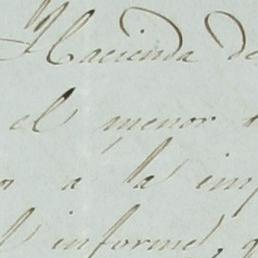 Hacienda de
el menor
a la imp
informe,